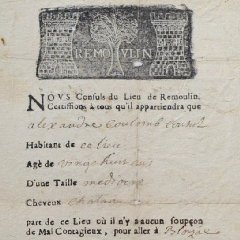 REMOULIN
NOUS Consuls du Lieu de Remoulin,
Certifions à tous qu'il appartiendra que
alexandre coulomb
Habitant de ce lieu
Agé de vingt huit ans
D'une Taille mediocre
Cheveux chatains
part de ce Lieu où il n'y a aucun soupçon
de Mal Contagieux, pour aller à